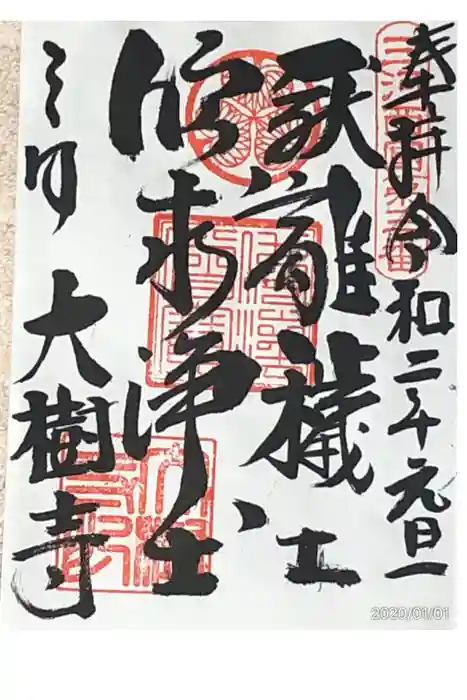 奉拝 令和二年元旦
厭離穢土
欣求浄土
大樹寺
2020/01/01